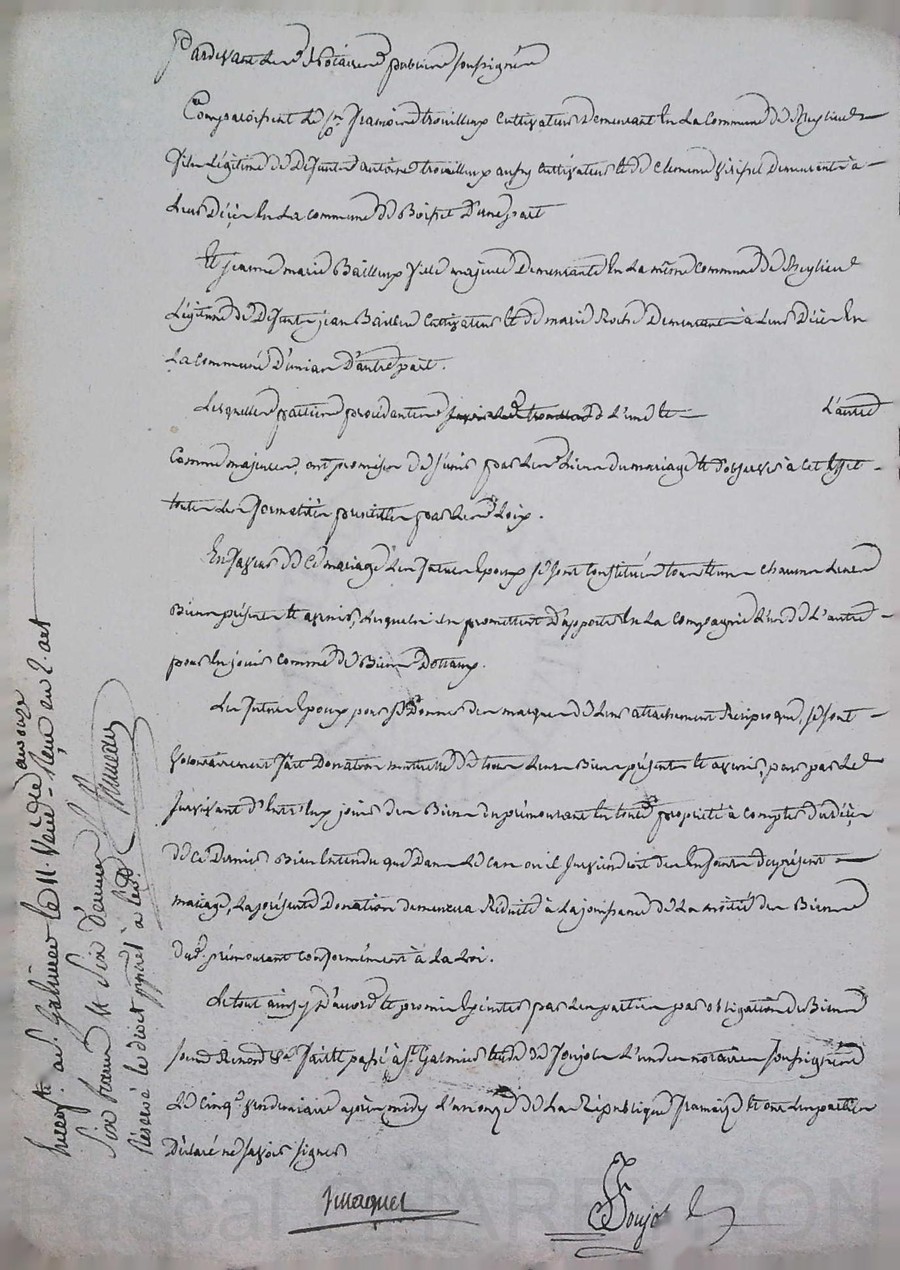 Pardevant les Notaires publics soussignés
Comparoissent le Sr françois trouilleux cultivateur demeurant en la Commune de
fils Légitime de défunts antoine trouilleux aussy cultivateur et de Clemence demeurants à
Leur Décès En La commune de Boisset D'une part
Et jeanne marie Bailleux fille majeure Demeurante En La même Commune de
Légitime de Défunts jean Bailleux Cultivateur Et de marie Roche Demeurants à Leur Décès En
La Commune D'unias D'autre part.
Lesquelles parties procédantes L'une et L'autre
Comme majeures, ont promis de s'unir par les Liens du mariage Et d'observer à Cet Effet
toutes Les formalités prescrittes par les Loix.
En faveur de Ce mariage Les futurs Epoux se sont Constitués tous Et uns Chacuns Leurs
Biens présents Et avenir, Lesquels ils promettent D'apporter En La Compagnie L'un de L'autre
pour En jouir Comme de Biens Dottaux.
Les futurs Epoux pour se Donner des marques de Leur attachement Réciproque, se sont
Volontairement fait Donation mutuelle de tous Leurs Biens présents Et avenir, pour par Le
survivant d'Entr'Eux jouir des Biens du prémourant En toute propriété à Compter du décès
de Ce Dernier Bien Entendu que Dans Le Cas ou il surviendroit des Enfants du présent
mariage, La présente Donation demeurera Réduite à La jouissance de La moitié des Biens
dud. prémourant Conformément à La Loi.
Le tout ainsy D'accord Et promis Exécuter par Les parties par obligation de Biens
soumis Renond &a fait Et passé à St Galmier Etude de Soujol L'un des notaires soussignés
Le Cinq Vendemiaire après midy L'an onze de La République française Et ont Les parties
Déclaré ne savoir signer
jumaquet
Soujol
Enregté. à St. Galmier le 11. Vend.re an onze
Six francs et Six Décimes
Réservé le droit après le décès